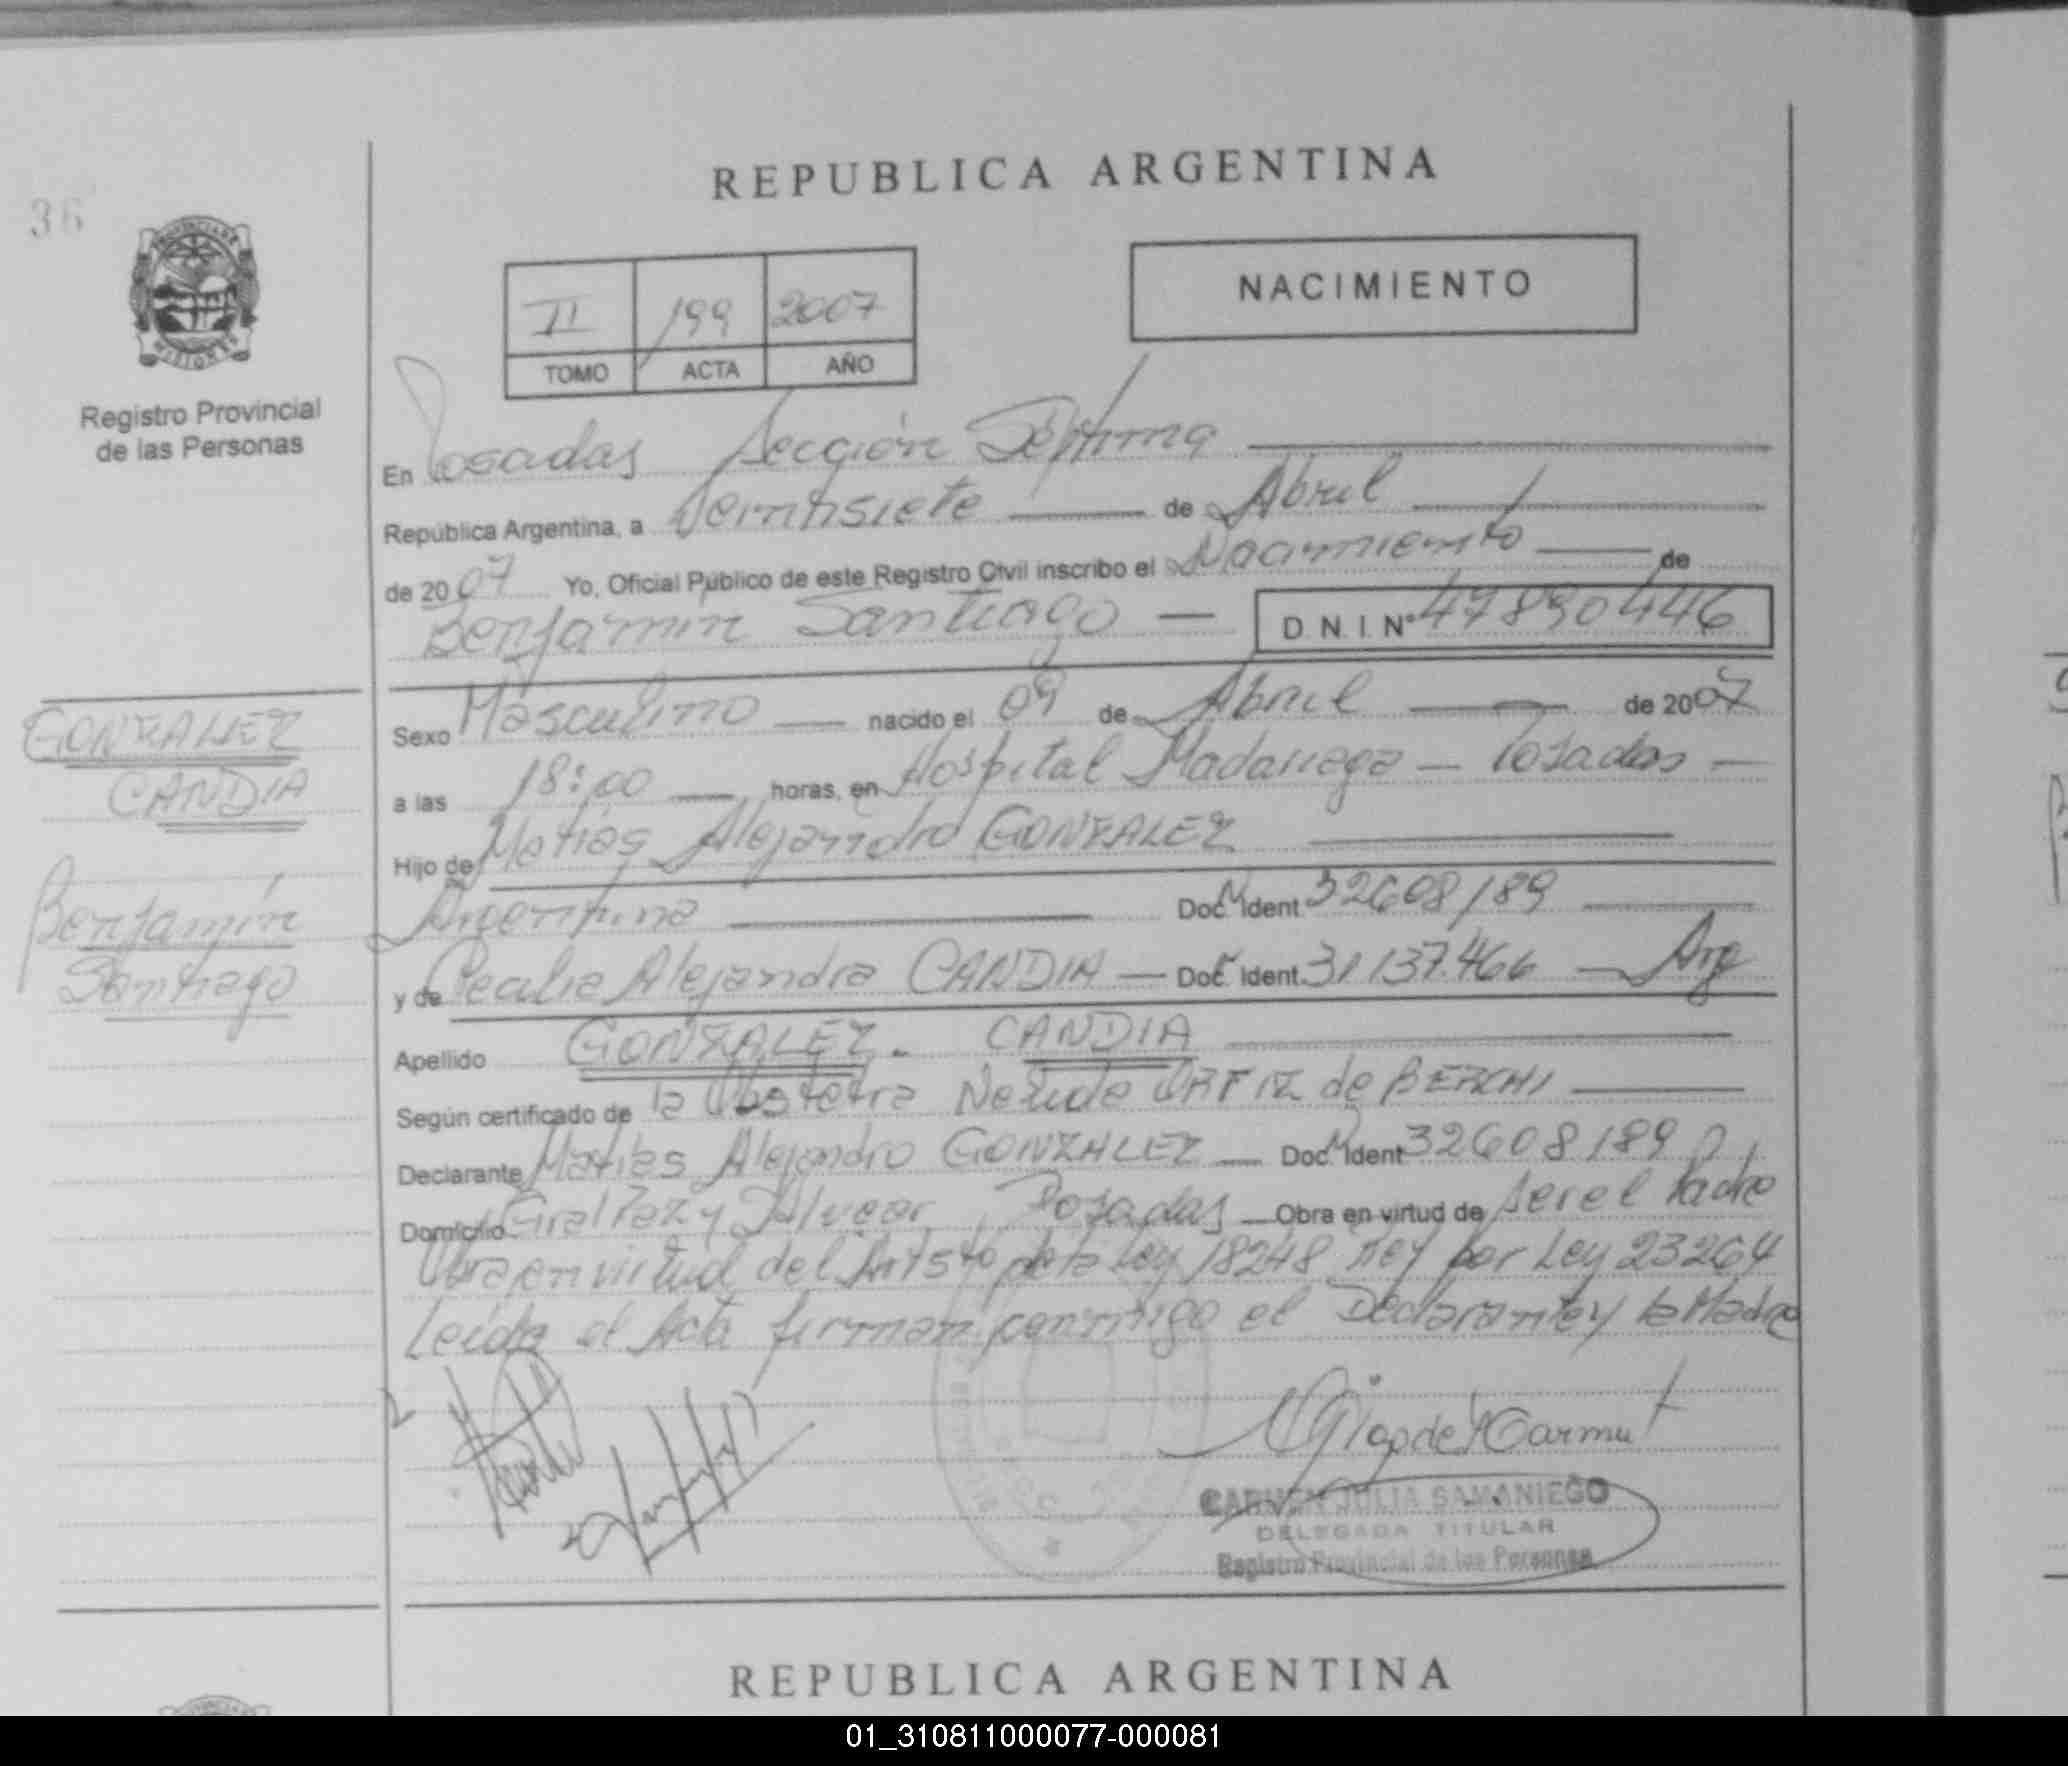 REPUBLICA ARGENTINA
36
PROVINCIA DE
MISIONES
Registro Provincial
de las Personas
II 199 2007
TOMO ACTA AÑO
NACIMIENTO
En Posadas Sección Séptima
República Argentina, a Veintisiete de Abril
de 2007 Yo, Oficial Público de este Registro Civil inscribo el Nacimiento de
Benjamín Santiago — D.N.I. Nº 47890446
GONZALEZ
CANDIA
Benjamín
Santiago
Sexo Masculino nacido el 09 de Abril de 2007
a las 18:00 horas, en Hospital Madariaga — Posadas —
Hijo de Matías Alejandro GONZALEZ
Argentina Doc. Ident. 32608189
y de Cecilia Alejandra CANDIA — Doc. Ident. 31137.466 — Arg
Apellido GONZALEZ - CANDIA
Según certificado de la Obstetra Nelida ORTIZ de BERCHI
Declarante Matías Alejandro GONZALEZ — Doc. Ident 32608189
Domicilio Gral Paz y Alvear, Posadas — Obra en virtud de ser el Padre
Obra en virtud del Art 5to de la Ley 18248 por Ley 23264
Leída el Acta firman conmigo el Declarante y la Madre
CARMEN JULIA SAMANIEGO
DELEGADA TITULAR
Registro Provincial de las Personas
REPUBLICA ARGENTINA
01_310811000077-000081